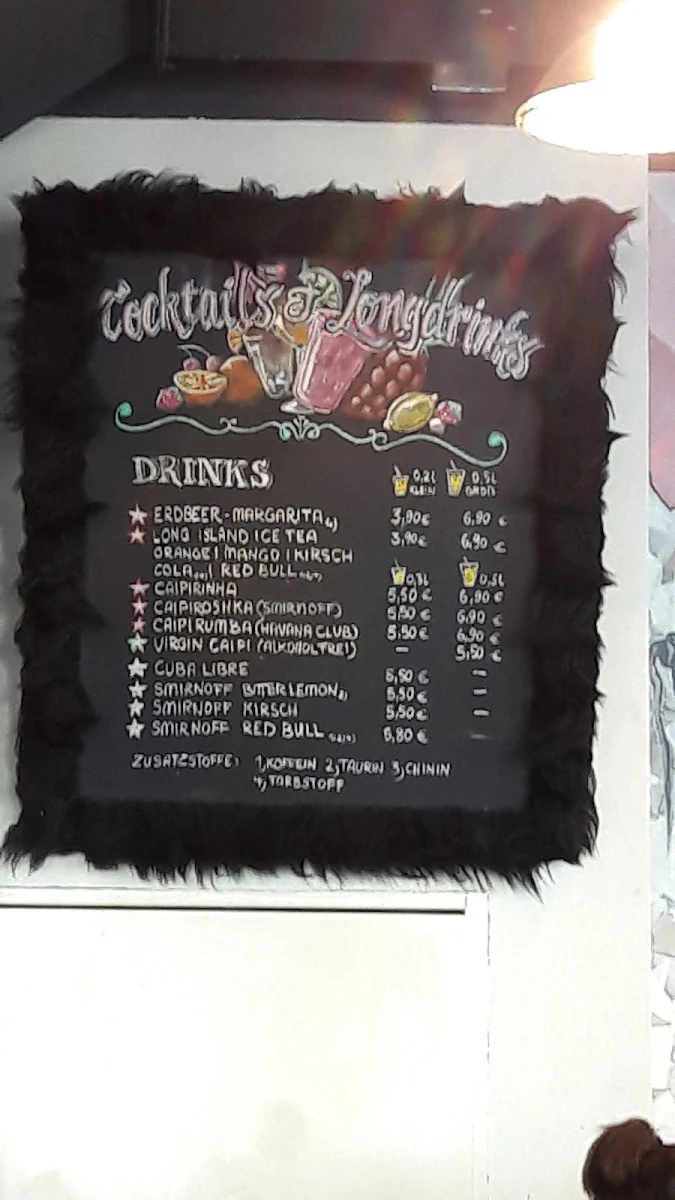 Cocktails & Longdrinks
DRINKS 0,2L KLEIN 0,5L GROß
ERDBEER-MARGARITA 4) 3,90€ 6,90 €
LONG ISLAND ICE TEA 3,90€ 6,90 €
ORANGE | MANGO | KIRSCH
COLA | RED BULL 0,3L 0,5L
CAIPIRINHA 5,50€ 6,90€
CAIPIROSHKA (SMIRNOFF) 5,50€ 6,90€
CAIPIRUMBA (HAVANA CLUB) 5,50€ 6,90€
VIRGIN CAIPI (ALKOHOLFREI) — 5,50 €
CUBA LIBRE 5,50€ —
SMIRNOFF BITTER LEMON 3) 5,50€ —
SMIRNOFF KIRSCH 5,50€ —
SMIRNOFF RED BULL 6,80€ —
ZUSATZSTOFFE: 1,KOFFEIN 2,TAURIN 3,CHININ
4,FARBSTOFF